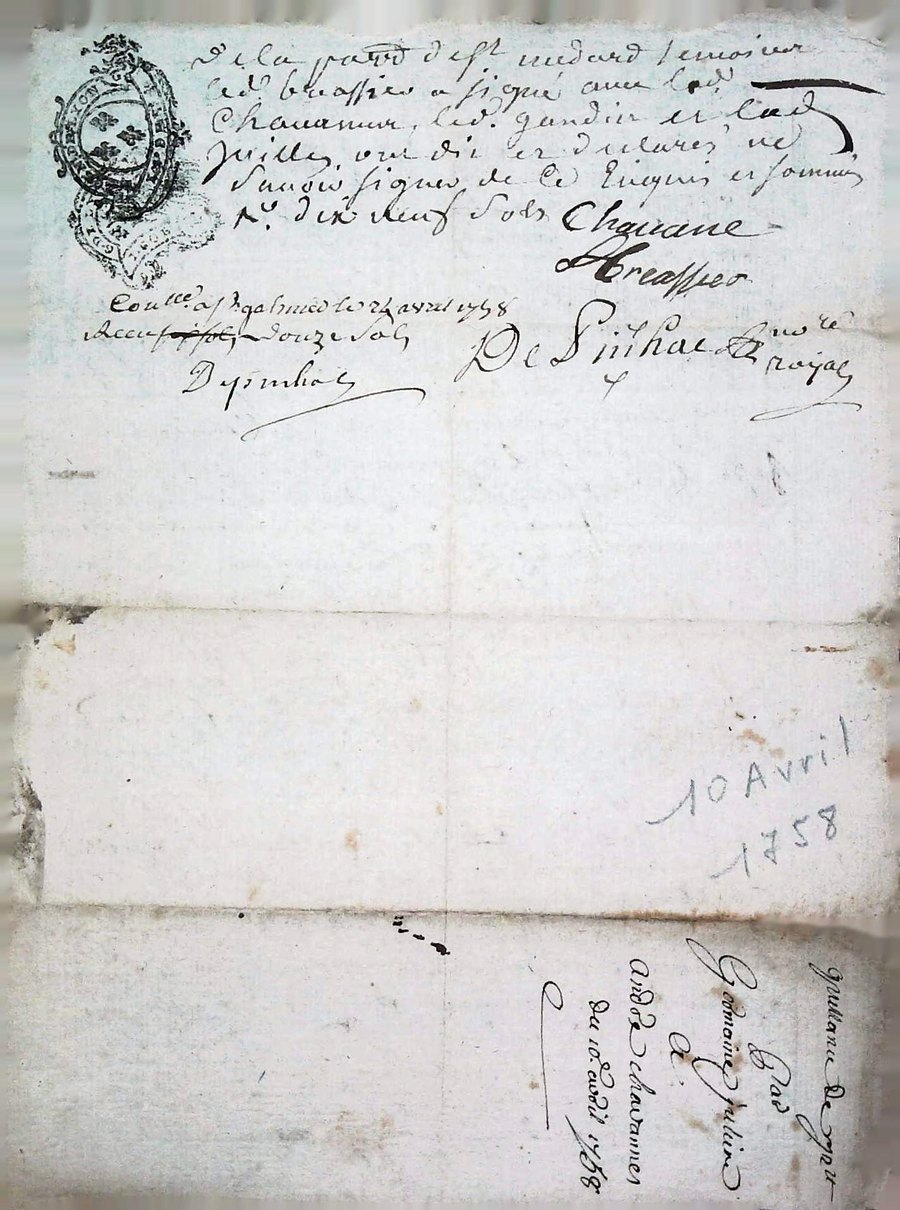 de la par^d de S^t medard temoins
led brassier a signé avec led.
Chavanne, led. gaudin et lad
juillien ont dit et declarés ne
Savoir signer de ce Enquis et sommés
dix neuf Sols
Chavane
Breassier
Con^llé a S^t galmier le 24 avril 1758
Receu douze Sols
Depinhac
De Pinhac no^re
royal
10 Avril
1758
quittance de
Par
Germaine julien
A
andré chavannes
du 10^e avril 1758